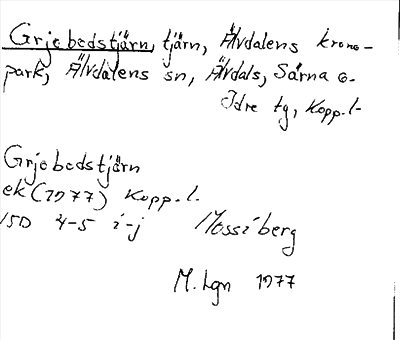 Grjebodstjärn, tjärn, Älvdalens krono-
park, Älvdalens sn, Älvdals, Särna o.
Idre tg, Kopp. l.
Grjebodstjärn
ek (1977) Kopp. l.
15D 4-5 i-j Mossiberg
M. Lgn 1977